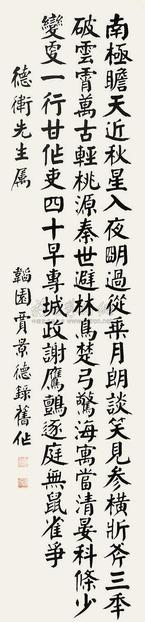 南極瞻天近秋星入夜朙過從乗月朗談笑見参橫斨斧三年
破雲霄萬古輕桃源秦世避林鳥楚弓驚海寓當清晏科條少
變更一行甘作吏四十早專城政謝鷹鸇逐庭無鼠雀爭
德衛先生属
韜園賈景德錄舊作